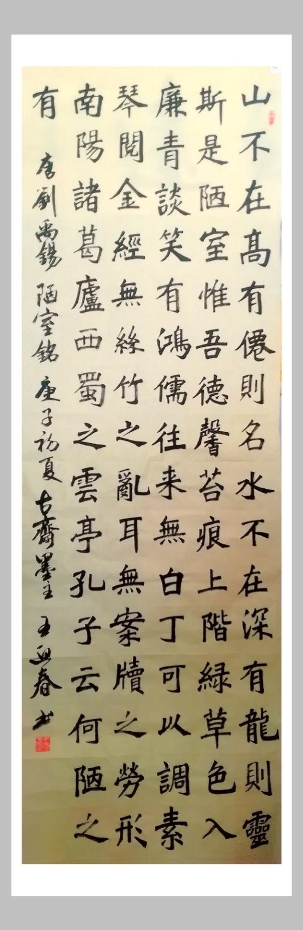 山不在髙有僊則名水不在深有龍則靈
斯是陋室惟吾德馨苔痕上階緑草色入
廉青談笑有鴻儒往来無白丁可以調素
琴閲金經無絲竹之亂耳無案牘之勞形
南陽諸葛廬西蜀之雲亭孔子云何陋之
有 唐劉禹錫 陋室銘 庚子初夏 古齊墨 王 春书